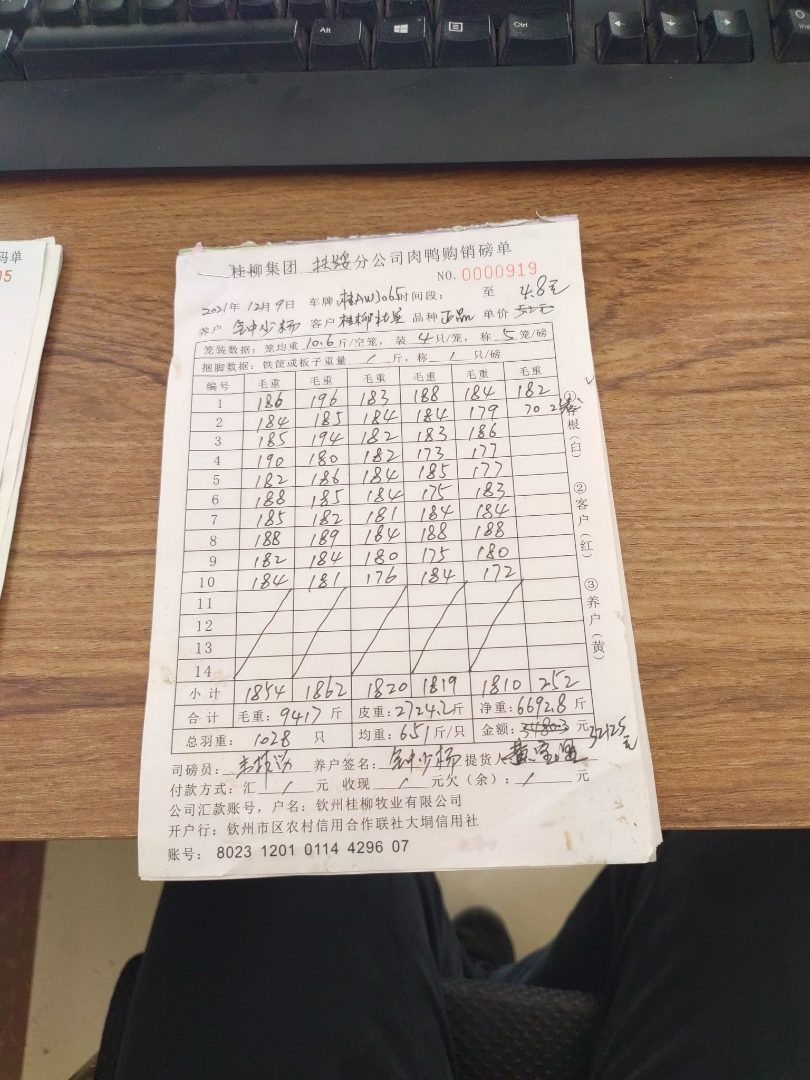 Alt Ctrl
码单
05
桂柳集团 扶绥 分公司肉鸭购销磅单
NO. 0000919
2021年 12月 9日 车牌: 桂AWJ065 时间段: 至 4.8元
养户 钟少杨 客户 桂柳 品种 正品 单价
笼装数据: 笼均重 10.6 斤/空笼, 装 4 只/笼, 称 5 笼/磅
捆脚数据: 铁筐或板子重量 / 斤, 称 / 只/磅
编号 毛重 毛重 毛重 毛重 毛重 毛重
1 186 196 183 188 184 182
2 184 185 184 184 179 70 2
3 185 194 182 183 186
4 190 180 182 173 177
5 182 186 184 185 177
6 188 185 184 175 183
7 185 182 181 184 184
8 188 189 184 188 188
9 182 184 180 175 180
10 184 181 176 184 172
11
12
13
14
小计 1854 1862 1820 1819 1810 252
合计 毛重: 9417 斤 皮重: 2724.2 斤 净重: 6692.8 斤
总羽重: 1028 只 均重: 6.51 斤/只 金额: 34803 元 32125元
司磅员: 养户签名: 钟少杨 提货人
付款方式: 汇 / 元 收现 / 元欠(余): / 元
公司汇款账号, 户名: 钦州桂柳牧业有限公司
开户行: 钦州市区农村信用合作联社大垌信用社
账号: 8023 1201 0114 4296 07
①存根(白)
②客户(红)
③养户(黄)